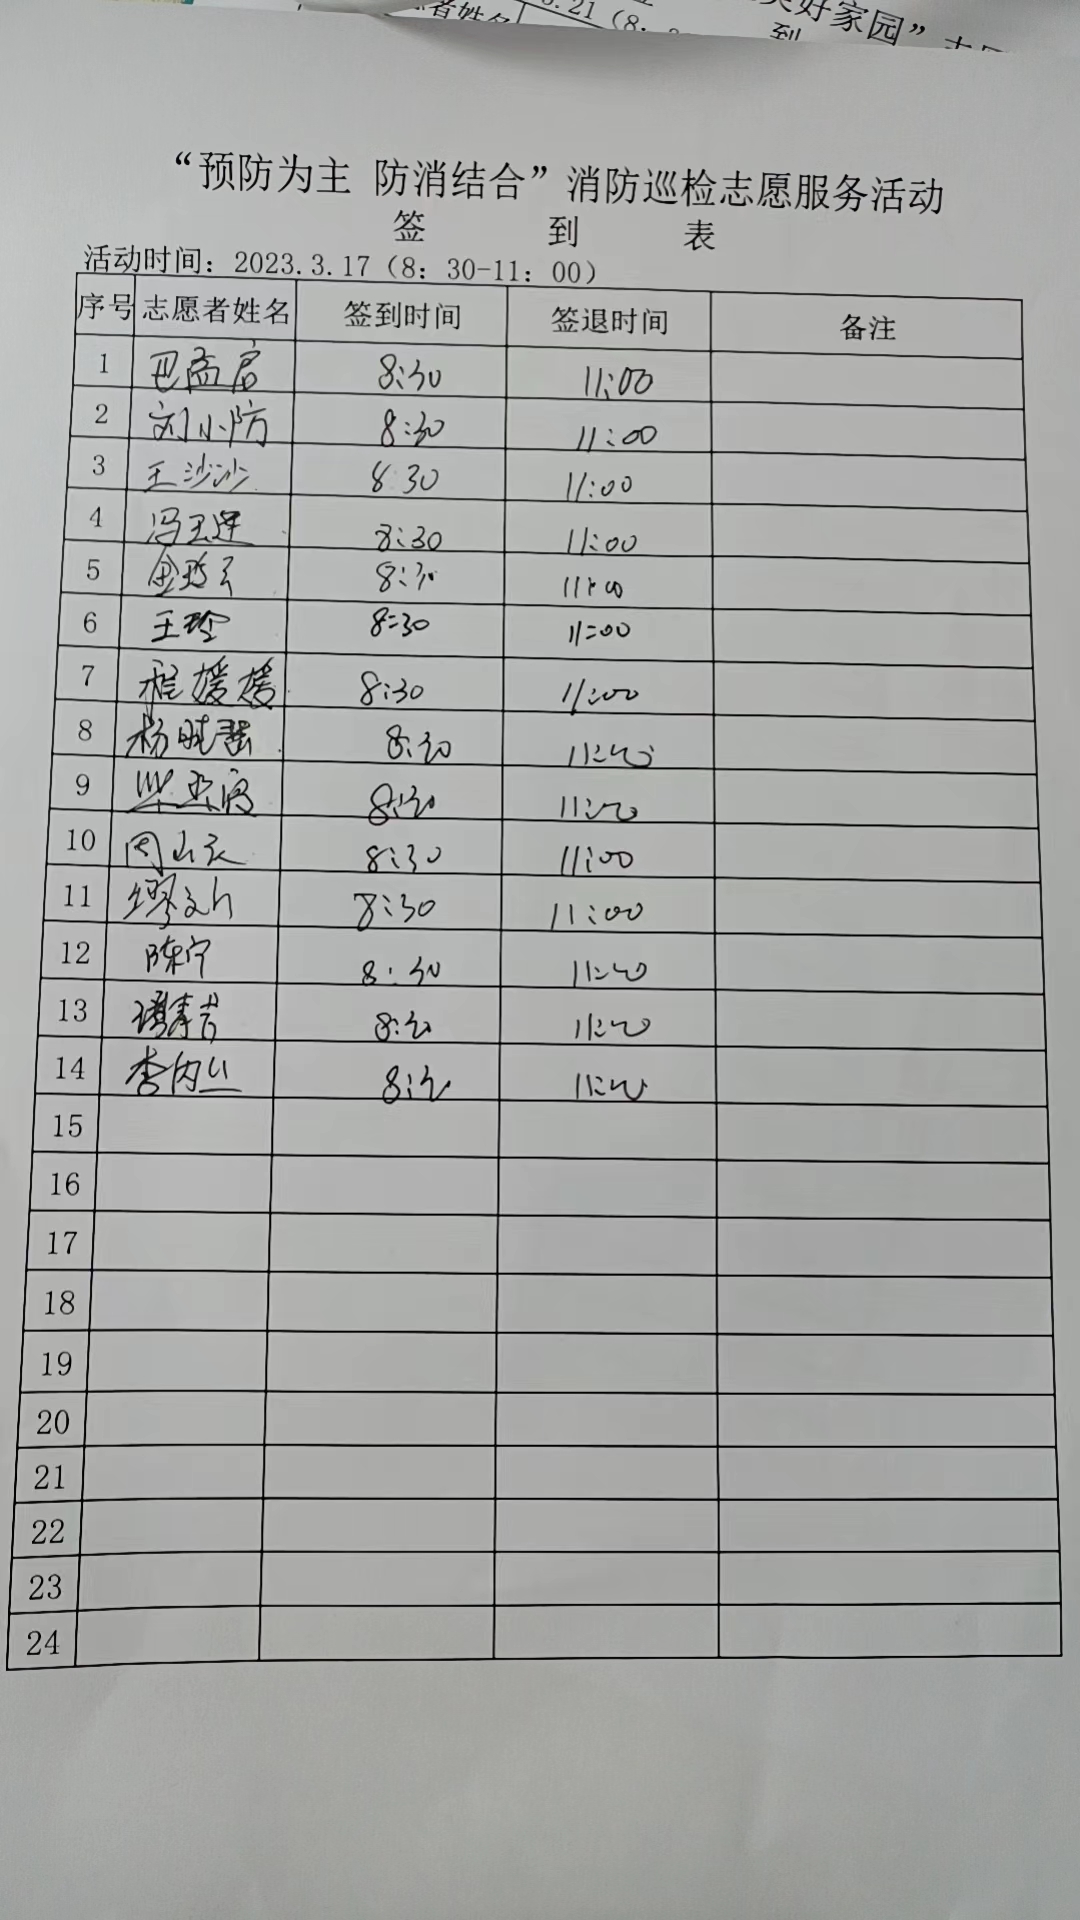 3.21（8：
美好家园”志
到
“预防为主 防消结合”消防巡检志愿服务活动
签 到 表
活动时间：2023.3.17（8：30-11：00）
序号 志愿者姓名 签到时间 签退时间 备注
1 巴孟启 8:30 11:00
2 刘小防 8:30 11:00
3 王沙沙 8:30 11:00
4 冯玉 8:30 11:00
5 8:30 11:00
6 王玲 8:30 11:00
7 程媛媛 8:30 11:00
8 杨晓慧 8:30 11:00
9 8:30 11:00
10 周山 8:30 11:00
11 缪文 8:30 11:00
12 陈宁 8:30 11:00
13 8:30 11:00
14 李 8:30 11:00
15
16
17
18
19
20
21
22
23
24